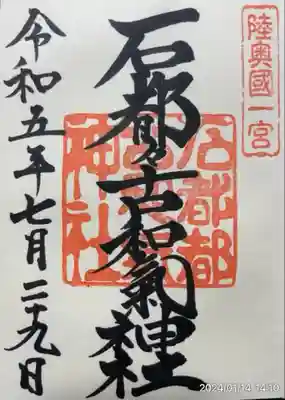 陸奥國一宮
石都々古和氣社
石都都
古和氣
神社
令和五年七月二十九日
2024/01/14 14:10